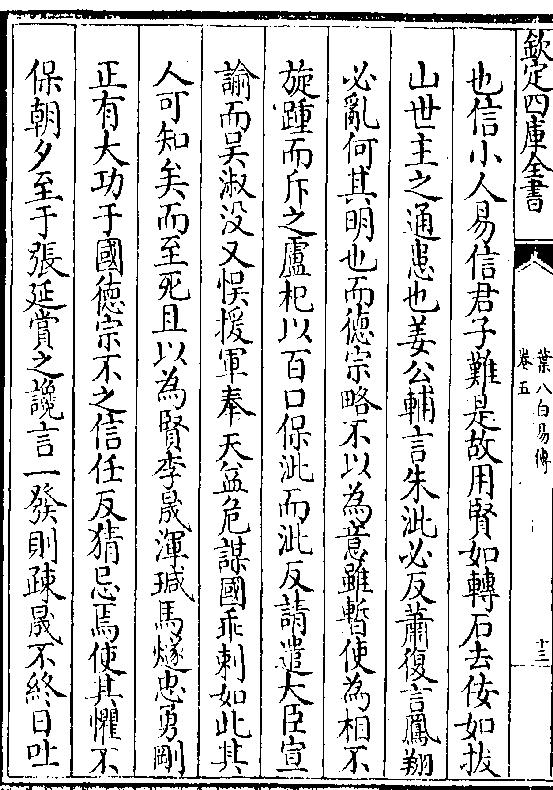 欽定四庫全書
葉八白易傳
卷五
十三
也信小人易信君子難是故用賢如轉石去佞如拔
山世主之通患也姜公輔言朱泚必反蕭復言鳳翔
必亂何其明也而德宗略不以為意雖暫使為相不
旋踵而斥之盧杞以百口保泚而泚反請遣大臣宣
諭而吴淑没又悞援軍奉天益危謀國乖刺如此其
人可知矣而至死且以為賢李晟渾瑊馬燧忠勇剛
正有大功于國德宗不之信任反猜忌焉使其懼不
保朝夕至于張延賞之讒言一發則疎晟不終日吐